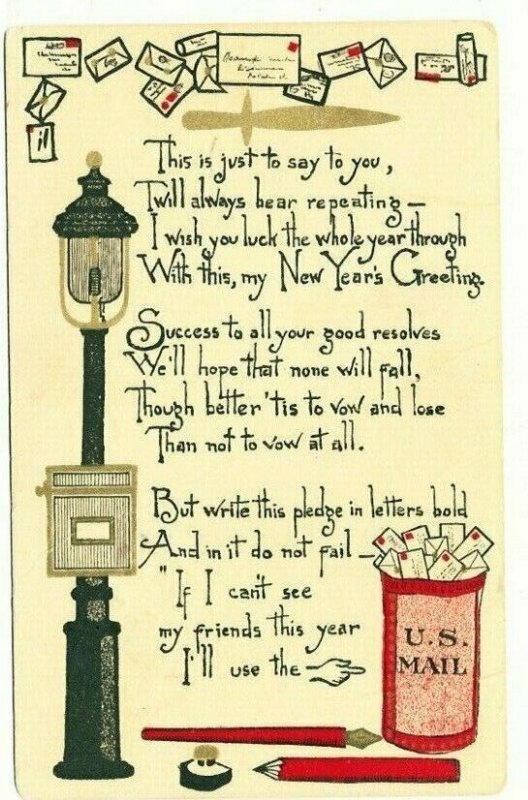 This is just to say to you,
'Twill always bear repeating —
I wish you luck the whole year through
With this, my New Year's Greeting.
Success to all your good resolves
We'll hope that none will fall,
Though better 'tis to vow and lose
Than not to vow at all.
But write this pledge in letters bold
And in it do not fail —
"If I can't see
my friends this year
I'll use the
U.S.
MAIL